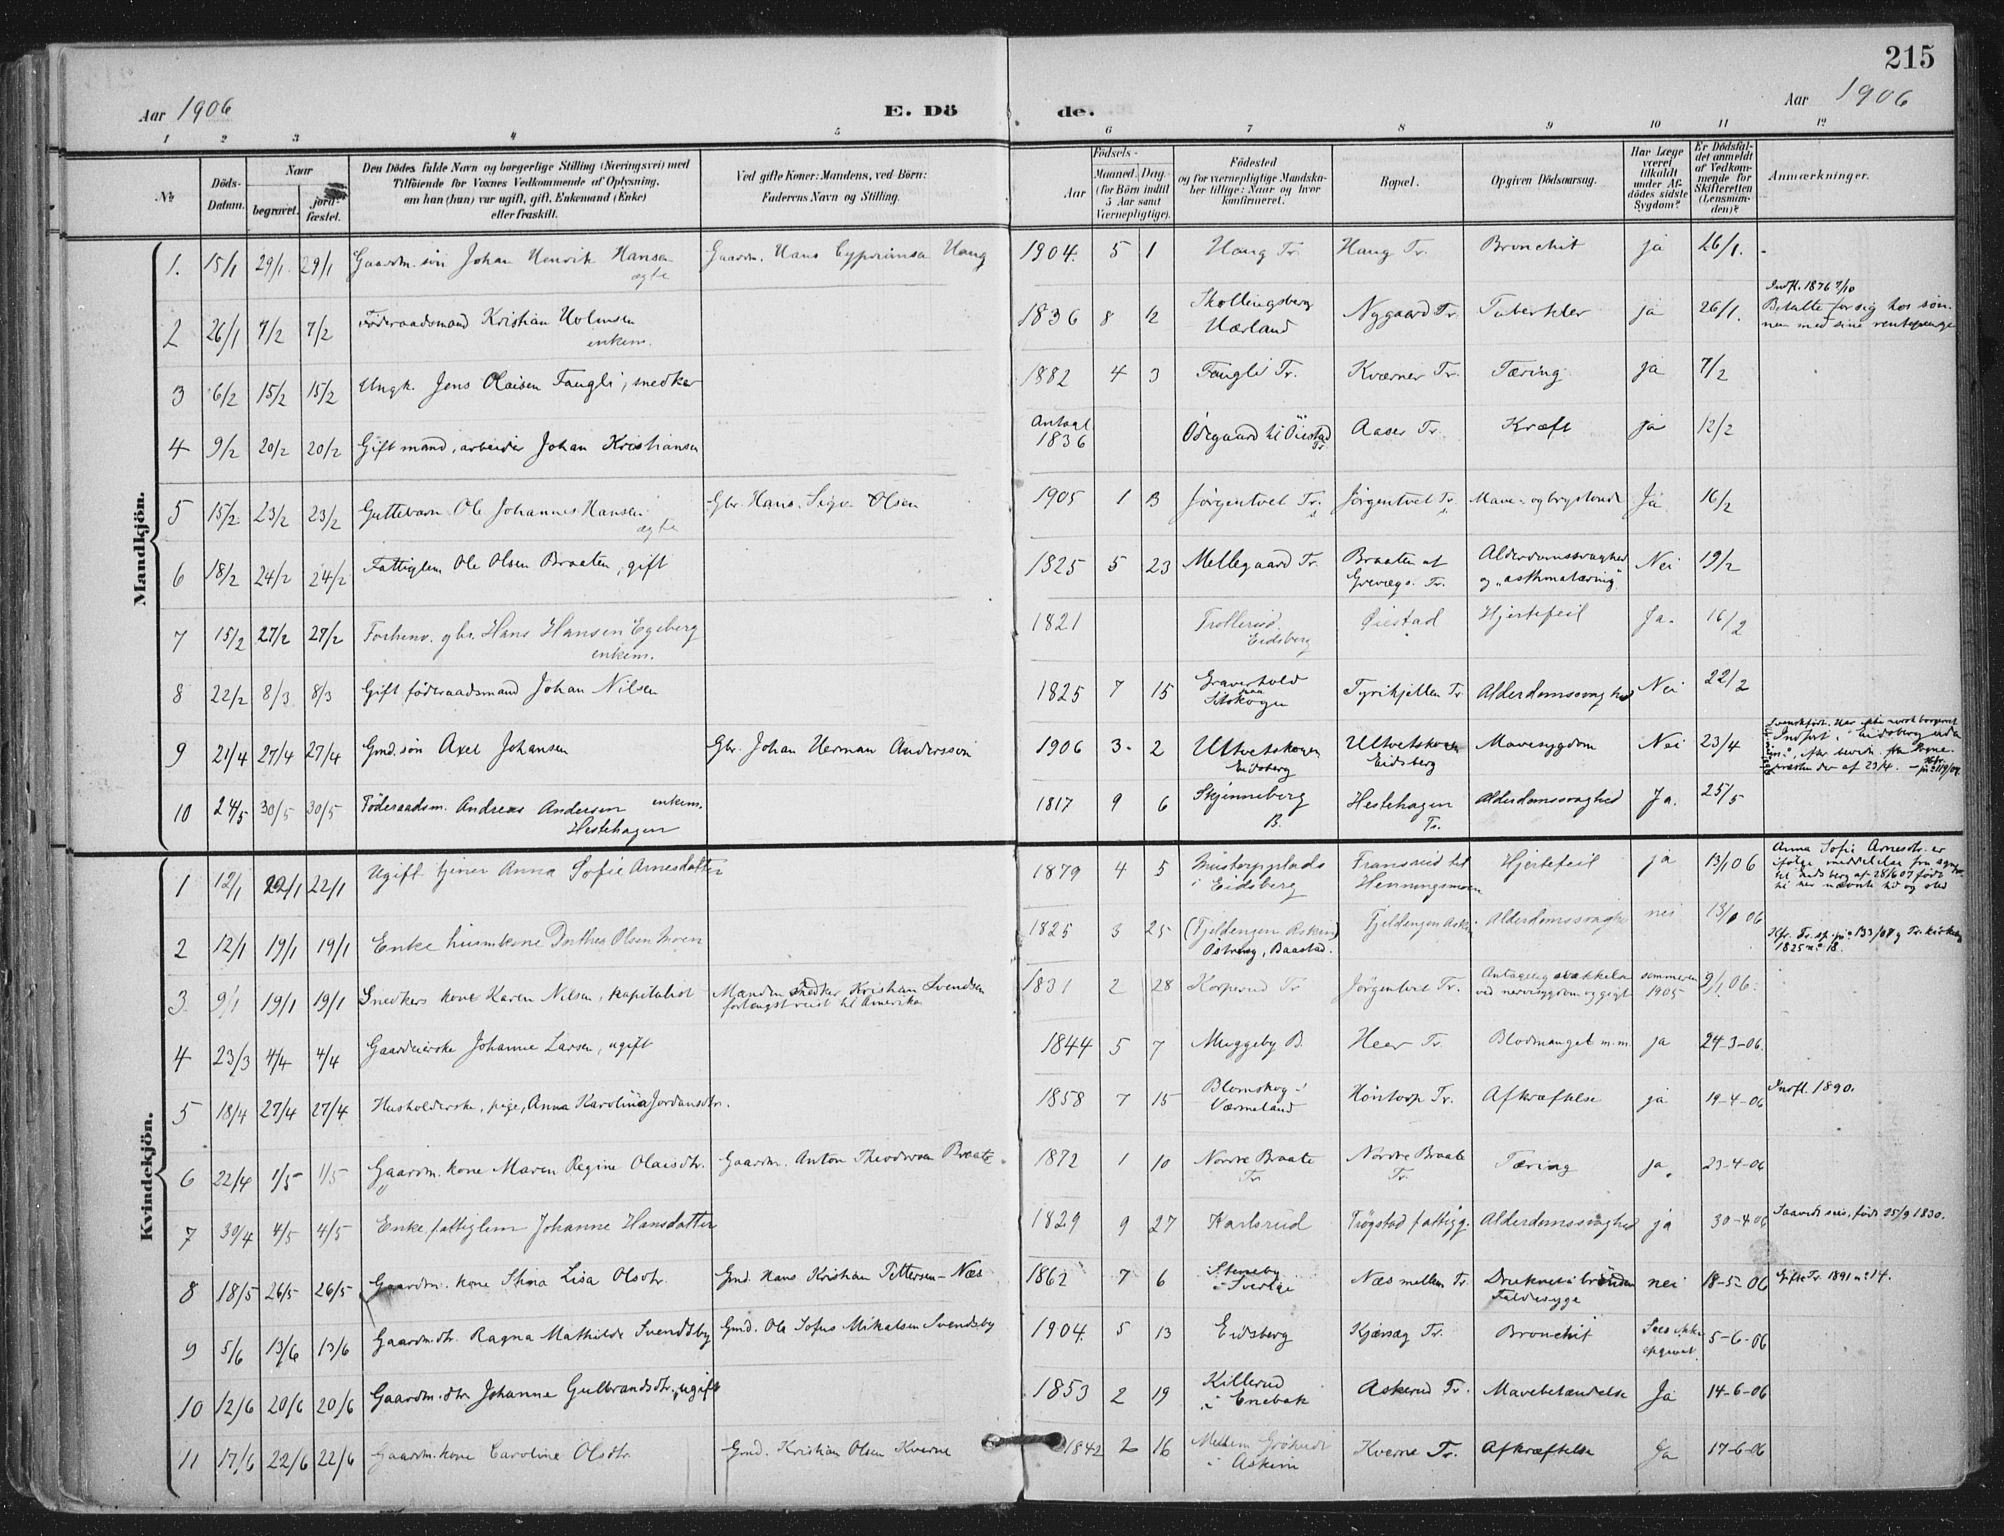 215
Aar 1906
E. Dö
de.
Aar 1906
1 2 3 4 5 6 7 8 9 10 11 12
№
Döds-Datum.
Naar
begravet.
jord-fæstet.
Den Dödes fulde Navn og borgerlige Stilling (Næringsvei) med
Tilföiende for Voxnes Vedkommende af Oplysning,
om han (hun) var ugift, gift, Enkemand (Enke)
eller fraskilt.
Ved gifte Koner: Mandens, ved Börn:
Faderens Navn og Stilling.
Födsels-
Aar
Maaned. Dag.
(for Börn indtil
5 Aar samt
Værnepligtige).
Födested
og for værnepligtige Mandska-
ber tillige: Naar og hvor
konfirmeret.
Bopæl.
Opgiven Dödsaarsag.
Har Læge
været
tilkaldt
under Af-
dödes sidste
Sygdom?
Er Dödsfal-
det anmeldt
af Vedkom-
mende for
Skifteretten
(Lensman-
den)?
Anmærkninger.
Mandkjön.
1. 15/1 29/1. 29/1 Gaardm. sön Johan Henrik Hansen Gaardm. Hans Cypriansen Haug 1904. 5 1 Haug Tr. Haug Tr. Bronchit ja 26/1.
ægte
Indfl. 1876 7/10
2 26/1 7/2 7/2 Föderaadsmand Kristian Holmsen 1836 8 12 Skollingsberg Nygaard Tr. Tuberkler ja 26/1. Betalte for sig hos søn-
enkem. Værland nen med sine rentepenge
3 6/2 15/2 15/2 Ungk. Jens Olaisen Faugli, snedker 1882 4 3 Faugli Tr. Kværner Tr. Tæring ja 7/2
4 9/2 20/2 20/2 Gift mand, arbeider Johan Kristiansen Antagl. 1836 Ödegaard til Öiestad Tr. Aaser Tr. Kræft ja 12/2
5 15/2 23/2 23/2 Guttebarn Ole Johannes Hansen Gbr. Hans Olsen 1905 1 13 Jörgentvet Tr. Jörgentvet Tr. Mave- og brystonde Ja 16/2
ægte
6 18/2 24/2 24/2 Fattiglem Ole Olsen Braaten, gift 1825 5 23 Mellegaard Tr. Braaten af Alderdomssvaghed Nei 19/2
Tr. og "asthmatæring"
7 15/2 27/2 27/2 Forhenv. gbr. Hans Hansen Egeberg 1821 Trollerud Öiestad Hjertefeil Ja. 16/2
enkem. Eidsberg
8 22/2 8/3 8/3 Gift föderaadsmand Johan Nilsen 1825 7 15 Graverhold paa Setskogen Tyrihjellen Tr. Alderdomssvaghed Nei 22/2
9 21/4 27/4 27/4 Gmd. sön Axel Johansen Gbr. Johan Herman Anderssön 1906 3. 2 Ultvetskogen Ultvetskogen Mavesygdom Nei 23/4
Eidsberg Eidsberg
10 24/5 30/5 30/5 Föderaadsm. Andreas Andersen enkem. 1817 9 6 Skjönneberg Hestehagen Alderdomssvaghed Ja. 25/5
Hestehagen B. Tr.
Kvindekjön.
1 12/1 22/1 22/1 Ugift tjener Anna Sofie Arnesdatter 1879 4 5 Mustorpplads Fransrud til Hjertefeil ja 13/1 06 Anna Sofie Arnesdtr. er
i Eidsberg Henningsmoen ifölge meddelelse fra spr.
til Eidsberg af 28/6 07 födt
til her nævnte tid og sted
2 12/1 19/1 19/1 Enke husmkone Dorthea Olsen Moen 1825 3 25 (Fjeldengen Askim) Fjeldengen Askim Alderdomssvaghed nei 13/1 06
Östreng, Baastad. 1825 n° 18.
3 9/1 19/1 19/1 Snedkers kone Karen Nilsen, kapitalist Manden snedker Kristian Svendsen 1831 2 28 Korperud Tr. Jörgentvet Tr. Antagelig sommeren 9/1. 06.
forlængst reist til Amerika ved nervesygdom og gigt 1905
4 23/3 4/4 4/4 Gaardeierske Johanne Larsen, ugift 1844 5 7 Muggeby B. Heer Tr. Blodmangel m.m. ja 24-3-06.
5 18/4 27/4 27/4 Husholderske, pige, Anna Karolina Jordansdtr. 1858 7 15 Blomskog i Höntorp Tr. Afkræftelse ja 19-4-06 Indfl. 1890.
Værmeland
6 22/4 1/5 1/5 Gaardm. kone Maren Regine Olaisdtr. Gaardm. Anton Theodorsen Braate. 1872 1 10 Nordre Braate Nordre Braate Tæring ja. 23-4-06
Tr. Tr.
7 30/4 4/5 4/5 Enke, fattiglem Johanne Hansdatter 1829 9 27 Karlsrud Trögstad fattigg. Alderdomssvaghed ja 30-4-06 födt 25/9 1830.
8 18/5 26/5 26/5 Gaardm. kone Stina Lisa Olsdtr. Gmd. Hans Kristian Pettersen-Næs 1862 7 6 Steneby Næs mellem Tr. Druknet i brönden nei 18-5-06 Gift Tr. 1891 n° 14.
i Sverige Faldesyge
9 5/6 13/6 13/6 Gaardm. dtr. Ragna Mathilde Svendsby Gmd. Ole Sofus Mikalsen Svendsby 1904. 5 13 Eidsberg Kjærsæg Tr. Bronchit Sees ikke opgivet 5-6-06
10 12/6 20/6 20/6 Gaardm. dtr. Johanne Gulbrandsdtr., ugift 1853 2 19 Killerud Askerud Tr. Mavebetændelse Ja 14-6-06
i Enebak
11 17/6 22/6 22/6 Gaardm. kone Caroline Olsdtr. Gmd. Kristian Olsen Kverne 1842 2 16 Mellem Grökedt Kverne Tr. Afkræftelse Ja 17-6-06
i Askim